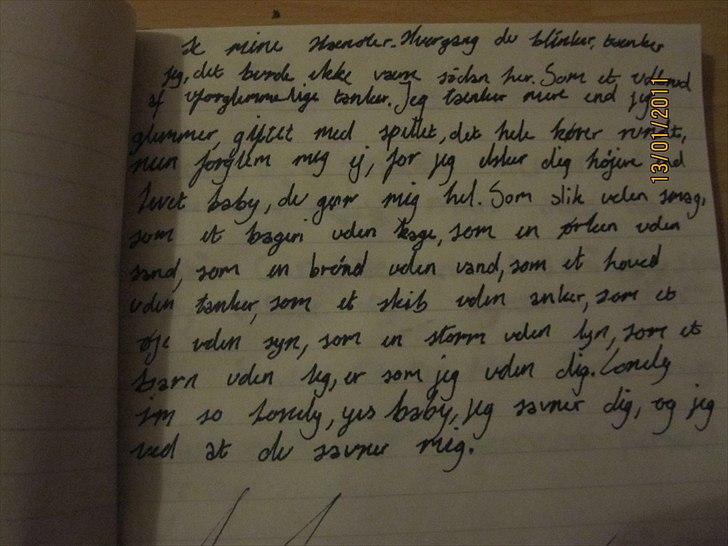 Se mine Hænder. Hvergang du blinker, tænker
jeg, det burde ikke være sådan her. Som et
af Uforglemmelige tanker. Jeg tænker mere end jeg
glemmer, giftet med spillet, det hele kører rundt,
men forglem mig ej, for jeg elsker dig højere end
livet baby, du gør mig hel. Som slik uden smag,
som et bageri uden kage, som en ørken uden
sand, som en brønd uden vand, som et hoved
uden tanker, som et skib uden anker, som et
øje uden syn, som en storm uden lyn, som et
barn uden leg, er som jeg uden dig. Lonely
im so Lonely, yes baby, jeg savner dig, og jeg
ved at du savner mig.
13/01/2011